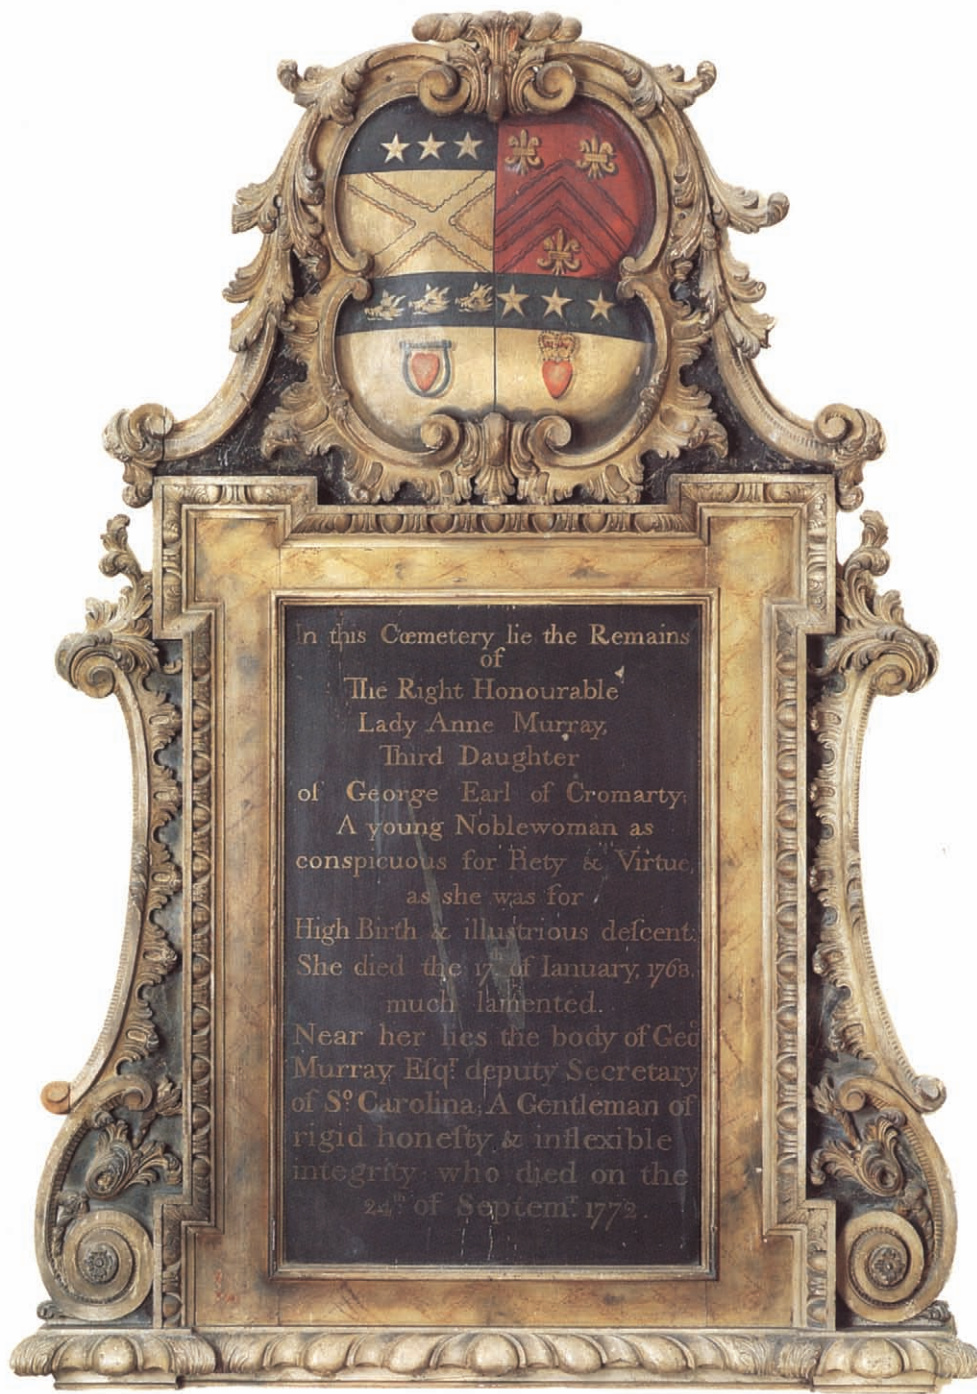 In this Cœmetery lie the Remains
of
The Right Honourable
Lady Anne Murray,
Third Daughter
of George Earl of Cromarty;
A young Noblewoman as
conspicuous for Piety & Virtue,
as she was for
High Birth & illustrious deſcent:
She died the 17 of Ianuary, 1768.
much lamented.
Near her lies the body of Geo:
Murray Eſqr. deputy Secretary
of So. Carolina; A Gentleman of
rigid honeſty & inflexible
integrity who died on the
24th. of Septemr. 1772.